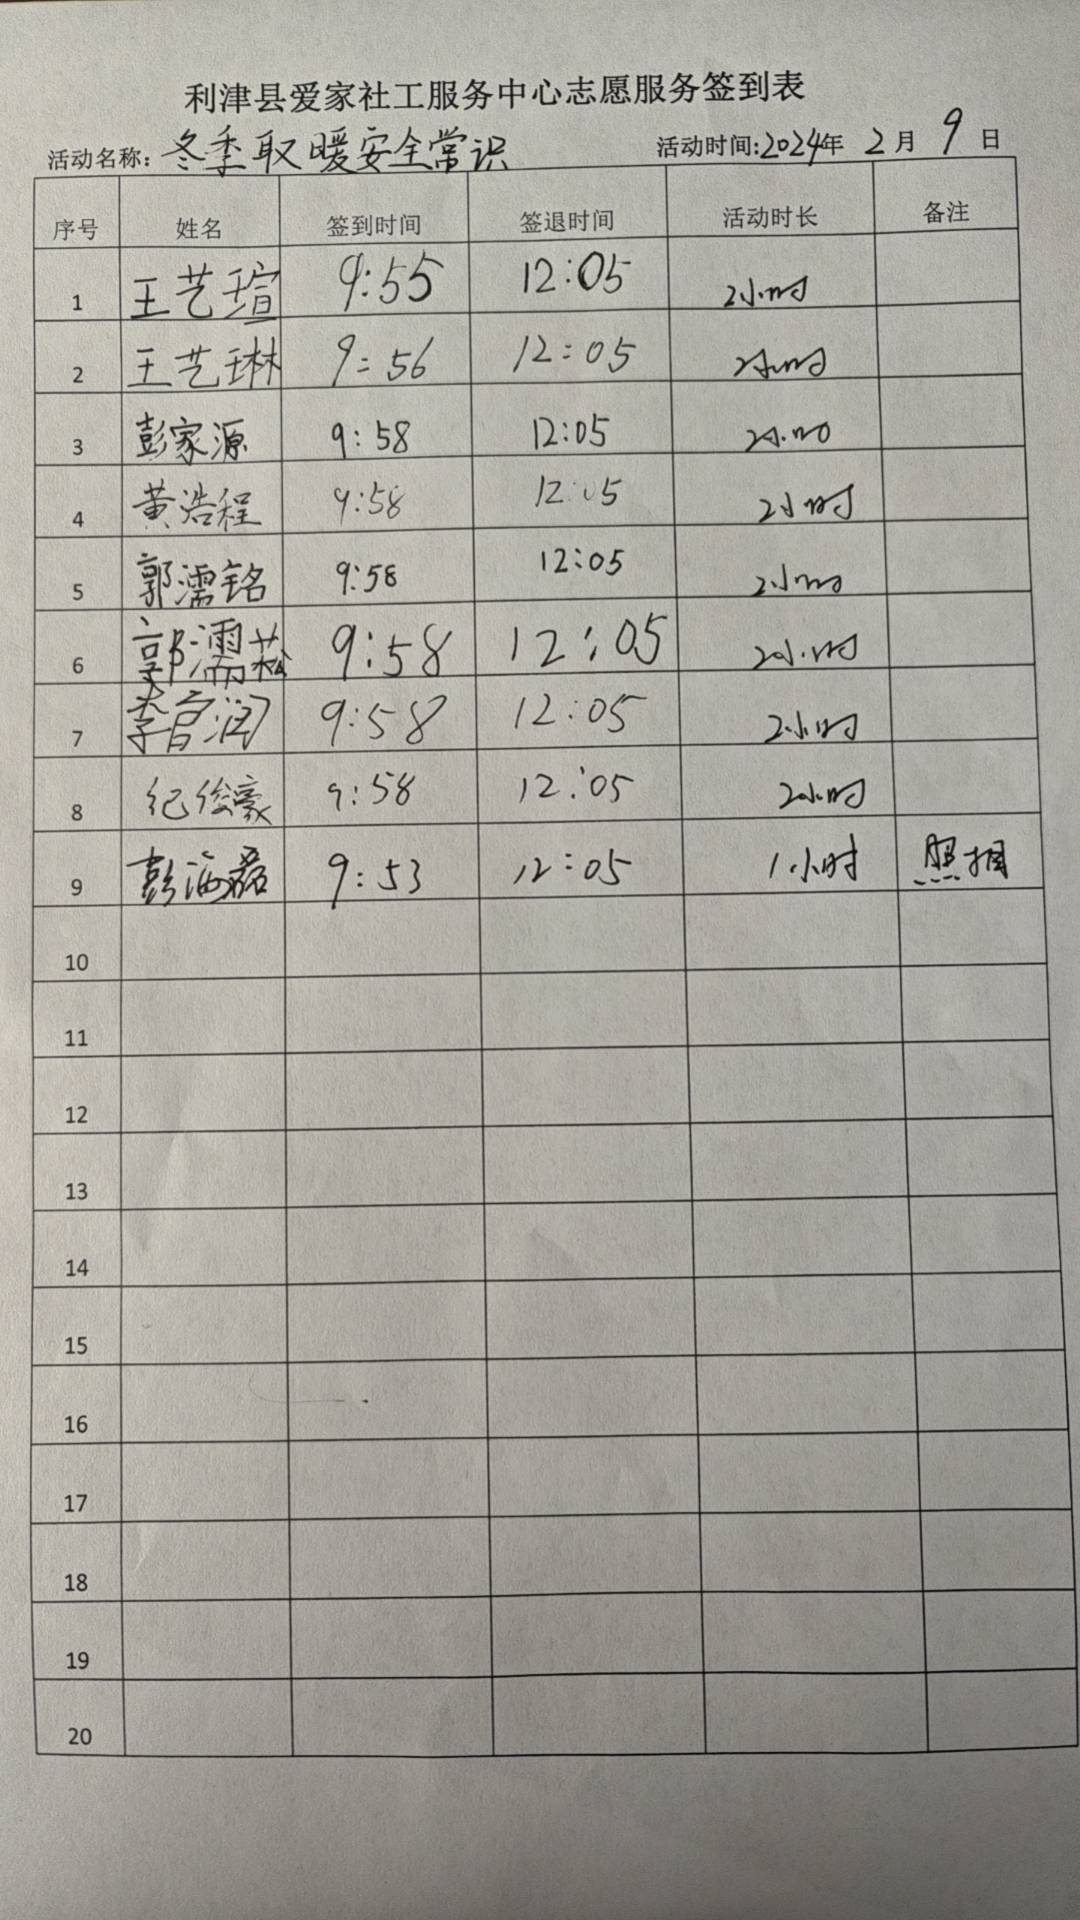 利津县爱家社工服务中心志愿服务签到表
活动名称：冬季取暖安全常识 活动时间:2024年 2月 9日
序号 姓名 签到时间 签退时间 活动时长 备注
1 王艺瑄 9:55 12:05 2小时
2 王艺琳 9:56 12:05 2小时
3 彭家源 9:58 12:05 2小时
4 黄浩程 9:58 12:05 2小时
5 郭濡铭 9:58 12:05 2小时
6 郭濡菘 9:58 12:05 2小时
7 李官润 9:58 12:05 2小时
8 纪俊豪 9:58 12:05 2小时
9 彭海磊 9:53 12:05 1小时 照相
10
11
12
13
14
15
16
17
18
19
20